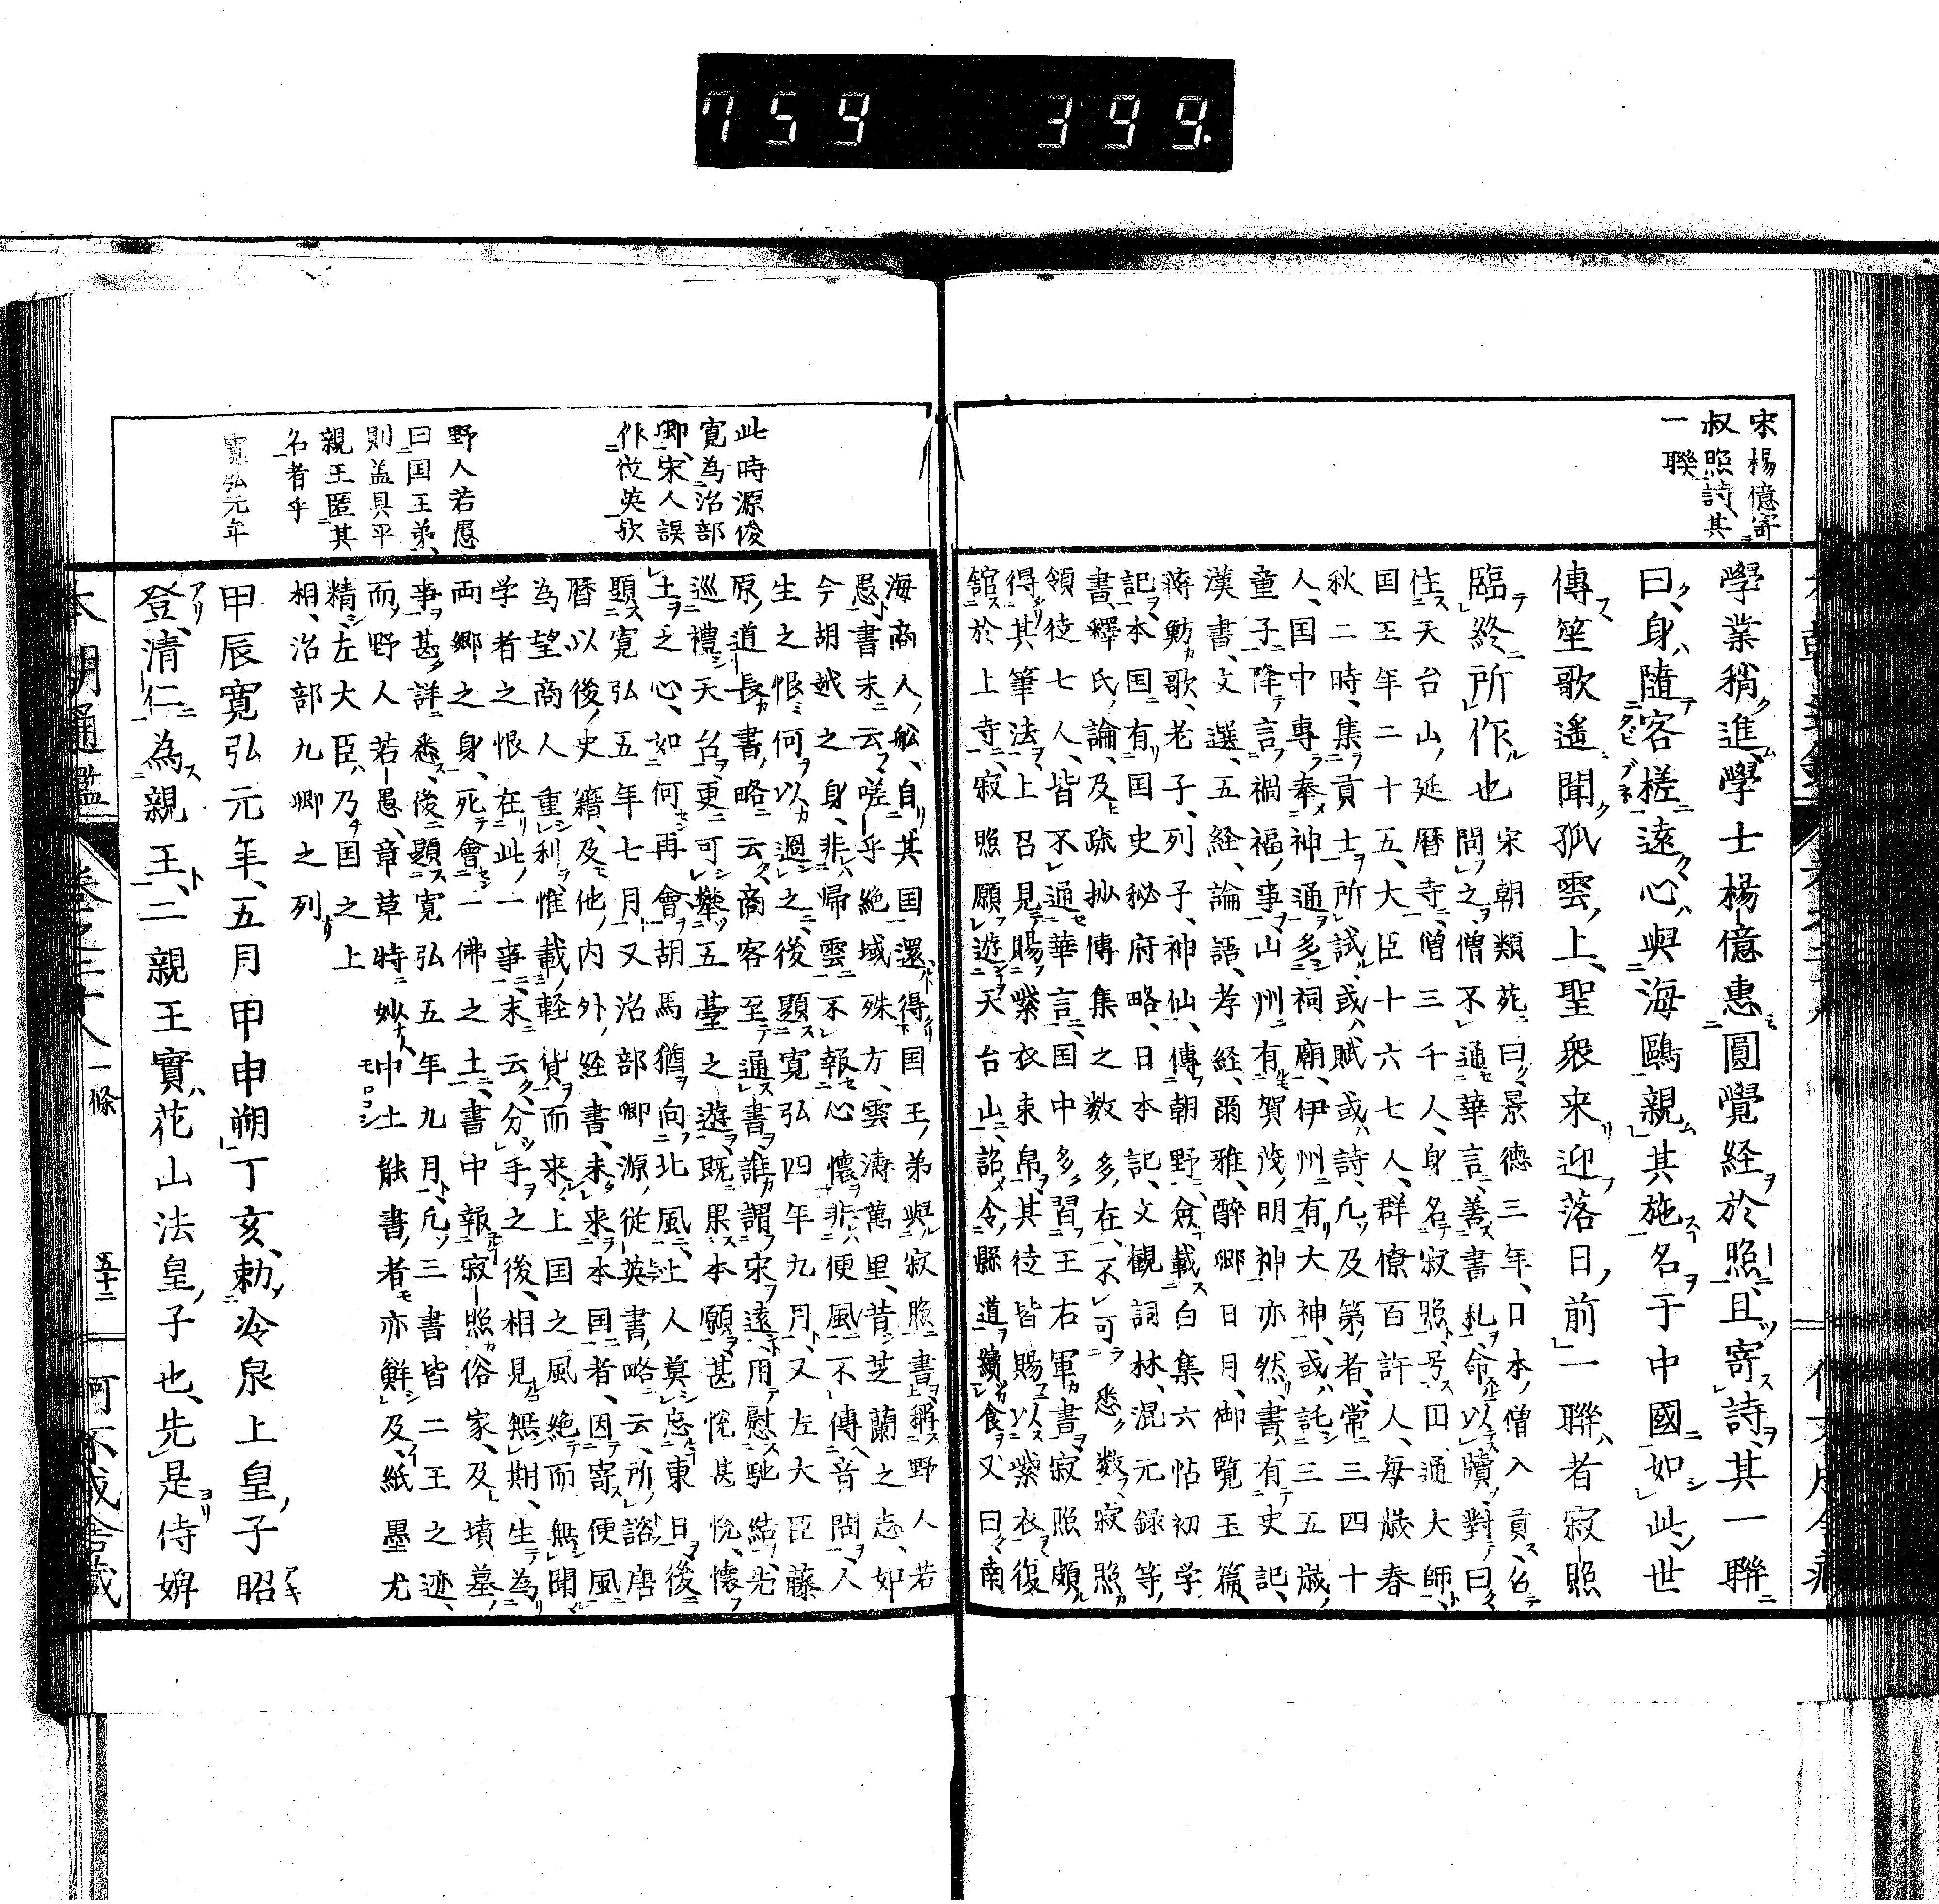 759 399.
宋楊億寄
叔照詩其
一聯
學業稍進學士楊億惠圓覺経於照且寄詩其一聯
曰身隨客槎遠心與海鷗親其施名于中國如此世
傳笙歌遙聞孤雲上聖衆来迎落日前一聯者寂照
臨終所作也
宋朝類苑曰景德三年日本僧入貢
問之僧不通華言善書札命以牘對曰
住天台山延暦寺僧三千人身名寂照号田通大師
国王年二十五大臣十六七人群僚百許人每歳春
秋二時集貢士所試或賦或詩凡及第者常三四十
人国中專奉神通多祠廟伊州有大神或託三五歳
童子降言禍福事山州有賀茂明神亦然書有史記
漢書文選五経論語孝経爾雅醉郷日月御覧玉篇
蒋魴歌老子列子神仙傳朝野僉載白集六帖初学
記本国有国史秘府略日本記文觀詞林混元録等
書釋氏論及疏抄傳集之数多在不可悉数寂照
領徒七人皆不通華言国中多習王右軍書寂照頗
得其筆法上召見賜紫衣束帛其徒皆賜以紫衣復
舘於上寺寂照願遊天台山詔令縣道續食又曰南
此時源俊
寛為治部
卿宋人誤
作從英欤
野人若愚
曰国王弟
則盖具平
親王匿其
名者乎
寛弘元年
海商人舩自其国還得国王弟與寂照書稱野人若
愚書末云嗟乎絶域殊方雲濤萬里昔芝蘭之志如
今胡越之身非帰雲不報心懐非便風不傳音問人
生之恨何以過之後題寛弘四年九月又左大臣藤
原道長書略云商客至通書誰謂宋遠用慰馳結先
巡禮天台更可攀五臺之遊既果本願甚悦甚悦懐
土之心如何再會胡馬猶向北風上人莫忘東日後
題寛弘五年七月又治部卿源從英書略云所諮唐
暦以後史籍及他内外経書未来本国者因寄便風
為望商人重利惟載軽貨而来上国之風絶而無聞
学者之恨在此一事末云分手之後相見無期生為
両郷之身死會一佛之土書中報寂照俗家及墳墓
事甚詳悉後題寛弘五年九月凡三書皆二王之迹
而野人若愚章草特妙中土能書者亦鮮及紙墨尤
精左大臣乃国之上
相治部九卿之列
甲辰寛弘元年五月甲申朔丁亥勅冷泉上皇子昭
登清仁為親王二親王實花山法皇子也先是侍婢
本朝通鑑
一條
五十二